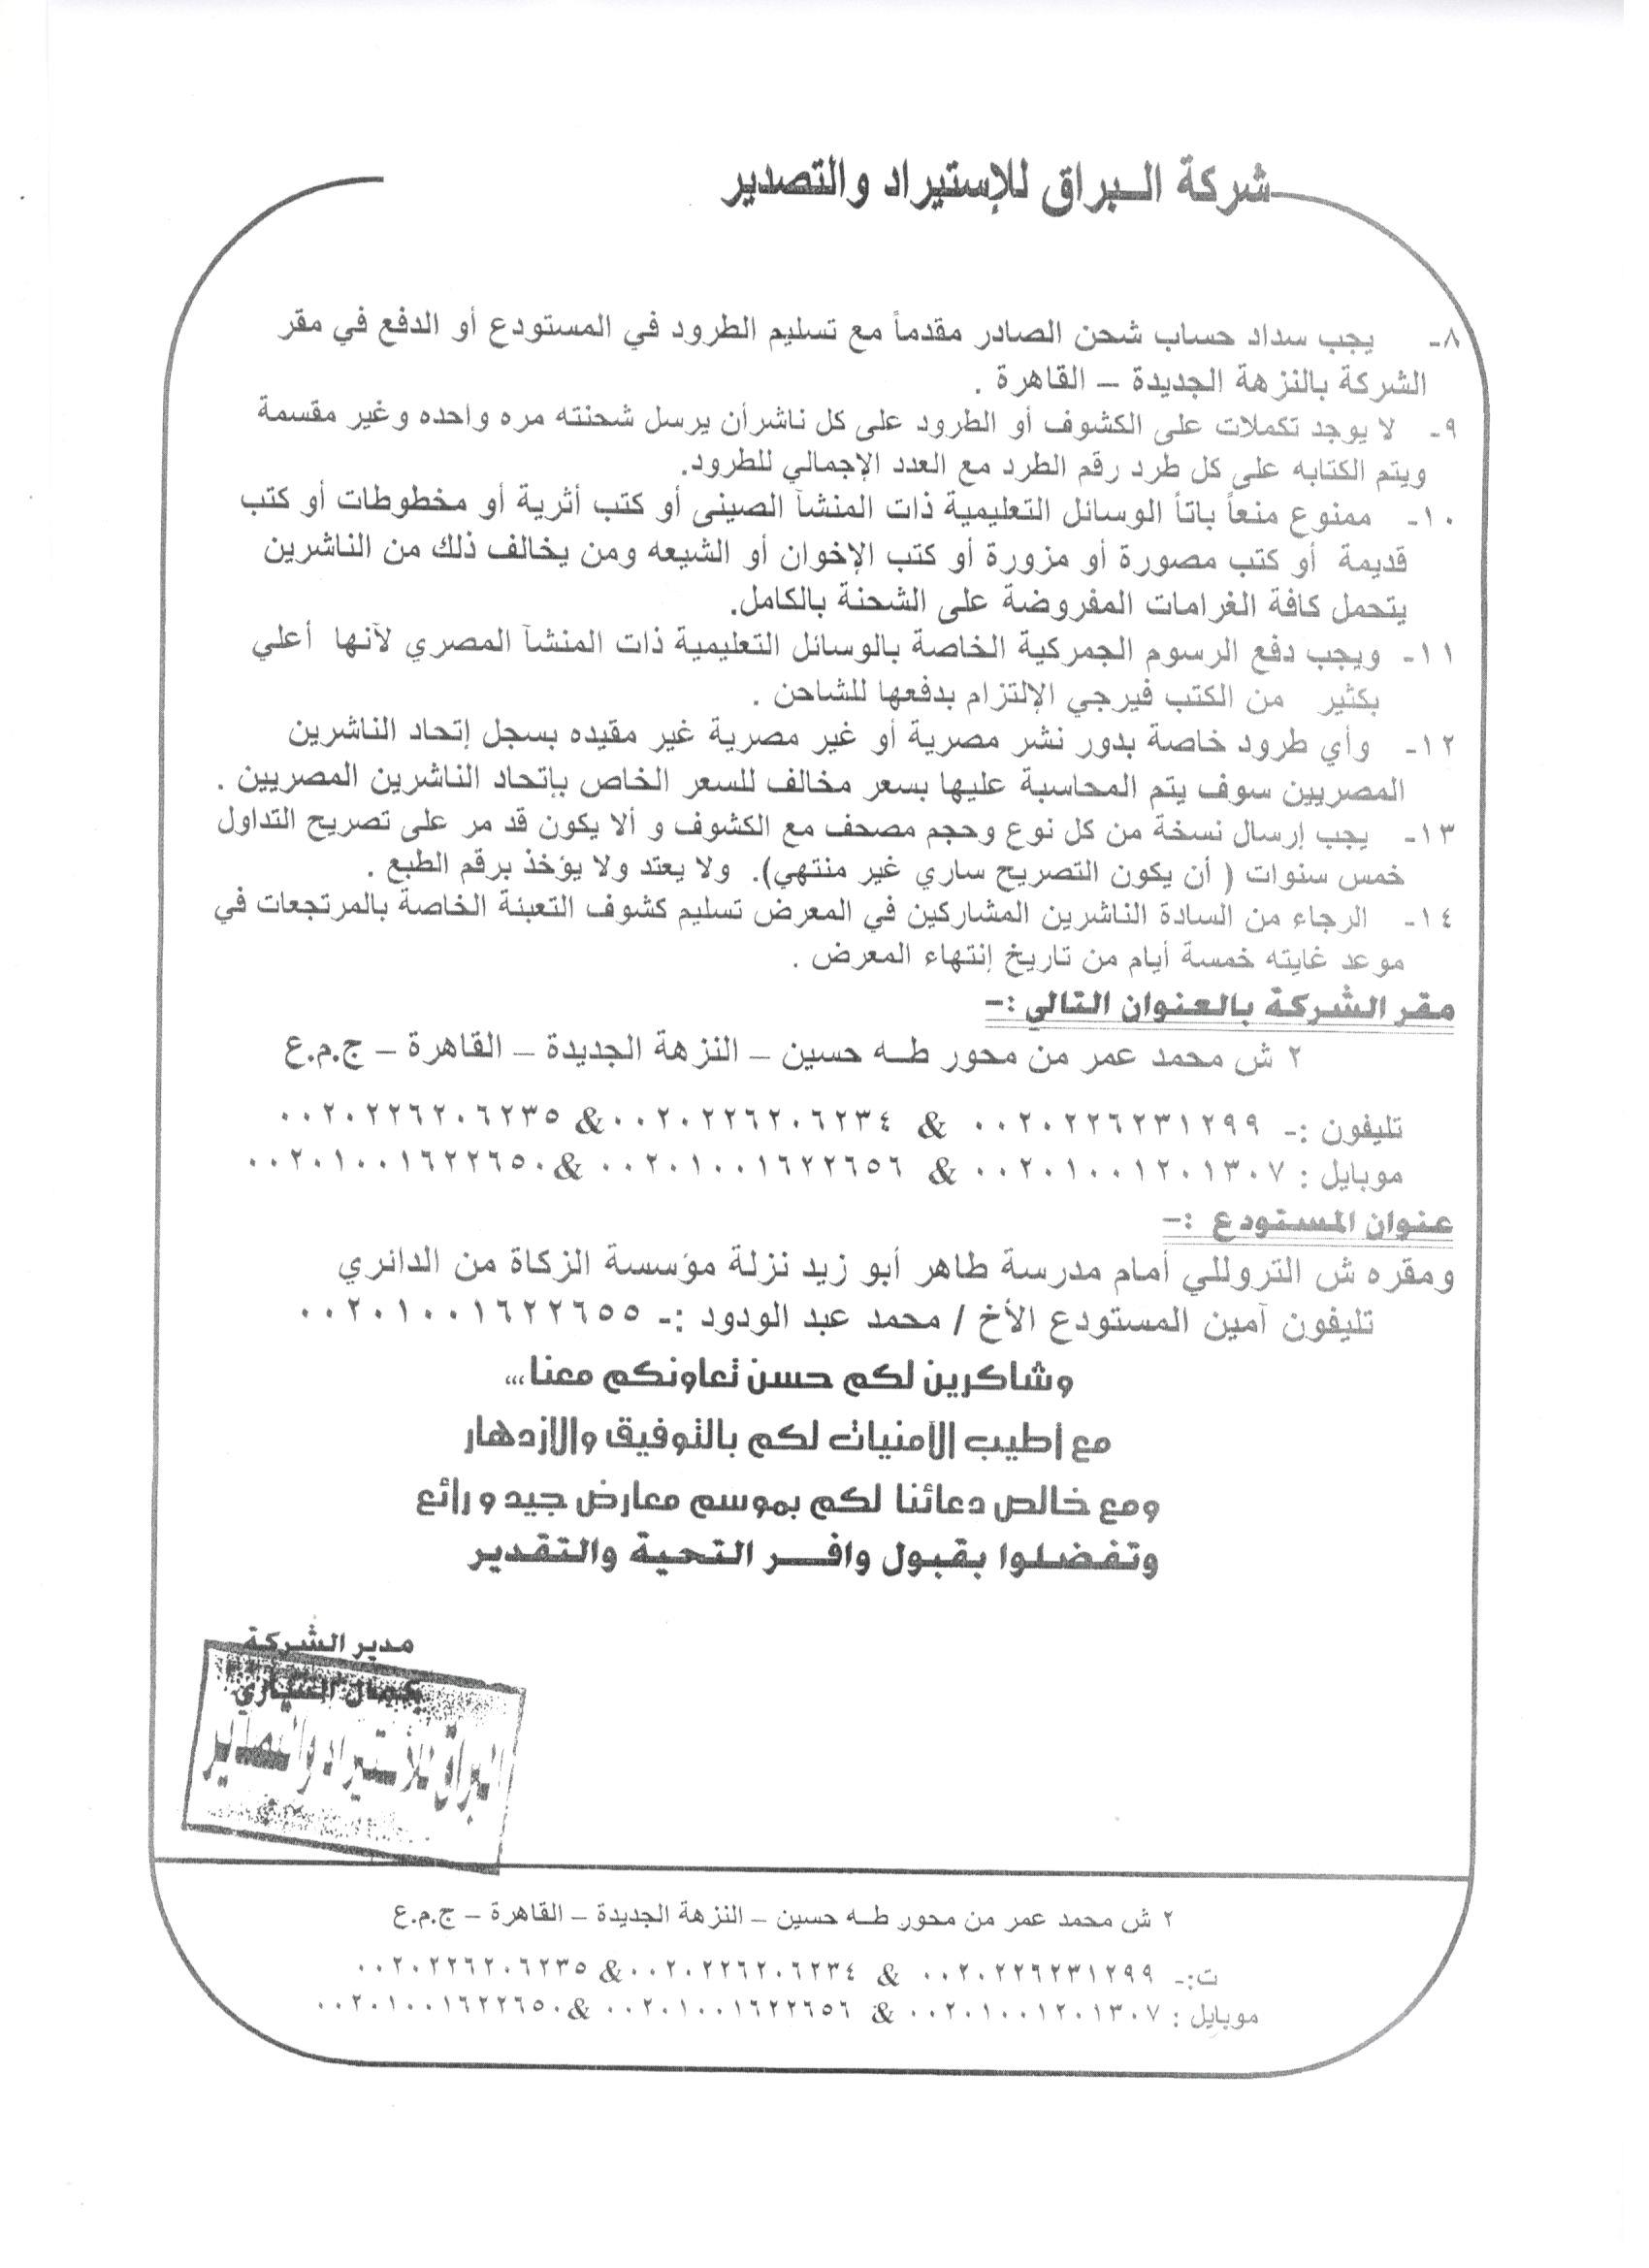 شركة البراق للإستيراد والتصدير
٨- يجب سداد حساب شحن الصادر مقدماً مع تسليم الطرود في المستودع أو الدفع في مقر
الشركة بالنزهة الجديدة – القاهرة .
٩- لا يوجد تكملات على الكشوف أو الطرود على كل ناشرأن يرسل شحنته مره واحده وغير مقسمة
ويتم الكتابه على كل طرد رقم الطرد مع العدد الإجمالي للطرود.
١٠- ممنوع منعاً باتاً الوسائل التعليمية ذات المنشآ الصينى أو كتب أثرية أو مخطوطات أو كتب
قديمة أو كتب مصورة أو مزورة أو كتب الإخوان أو الشيعه ومن يخالف ذلك من الناشرين
يتحمل كافة الغرامات المفروضة على الشحنة بالكامل.
١١- ويجب دفع الرسوم الجمركية الخاصة بالوسائل التعليمية ذات المنشآ المصري لآنها أعلي
بكثير من الكتب فيرجي الإلتزام بدفعها للشاحن .
١٢- وأي طرود خاصة بدور نشر مصرية أو غير مصرية غير مقيده بسجل إتحاد الناشرين
المصريين سوف يتم المحاسبة عليها بسعر مخالف للسعر الخاص بإتحاد الناشرين المصريين .
١٣- يجب إرسال نسخة من كل نوع وحجم مصحف مع الكشوف و ألا يكون قد مر على تصريح التداول
خمس سنوات ( أن يكون التصريح ساري غير منتهي). ولا يعتد ولا يؤخذ برقم الطبع .
١٤- الرجاء من السادة الناشرين المشاركين في المعرض تسليم كشوف التعبئة الخاصة بالمرتجعات في
موعد غايته خمسة أيام من تاريخ إنتهاء المعرض .
مقر الشركة بالعنوان التالي :-
٢ ش محمد عمر من محور طه حسين – النزهة الجديدة – القاهرة – ج.م.ع
تليفون :- ٠٠٢٠٢٢٦٢٣١٢٩٩ & ٠٠٢٠٢٢٦٢٠٦٢٣٤ & ٠٠٢٠٢٢٦٢٠٦٢٣٥
موبايل : ٠٠٢٠١٠٠١٢٠١٣٠٧ & ٠٠٢٠١٠٠١٦٢٢٦٥٦ & ٠٠٢٠١٠٠١٦٢٢٦٥٠
عنوان المستودع :-
ومقره ش التروللي أمام مدرسة طاهر أبو زيد نزلة مؤسسة الزكاة من الدائري
تليفون آمين المستودع الأخ / محمد عبد الودود :- ٠٠٢٠١٠٠١٦٢٢٦٥٥
وشاكرين لكم حسن تعاونكم معنا،،،
مع أطيب الأمنيات لكم بالتوفيق والازدهار
ومع خالص دعائنا لكم بموسم معارض جيد ورائع
وتفضلوا بقبول وافر التحية والتقدير
مدير الشركة
كمال
البراق للأستيراد والتصدير
٢ ش محمد عمر من محور طه حسين – النزهة الجديدة – القاهرة – ج.م.ع
ت:- ٠٠٢٠٢٢٦٢٣١٢٩٩ & ٠٠٢٠٢٢٦٢٠٦٢٣٤ & ٠٠٢٠٢٢٦٢٠٦٢٣٥
موبايل : ٠٠٢٠١٠٠١٢٠١٣٠٧ & ٠٠٢٠١٠٠١٦٢٢٦٥٦ & ٠٠٢٠١٠٠١٦٢٢٦٥٠